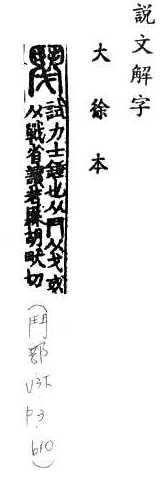 説文解字
大徐本
試力士錘也从鬥从戈或
从戰省讀若縣胡畎切
(鬥部
P3
610)